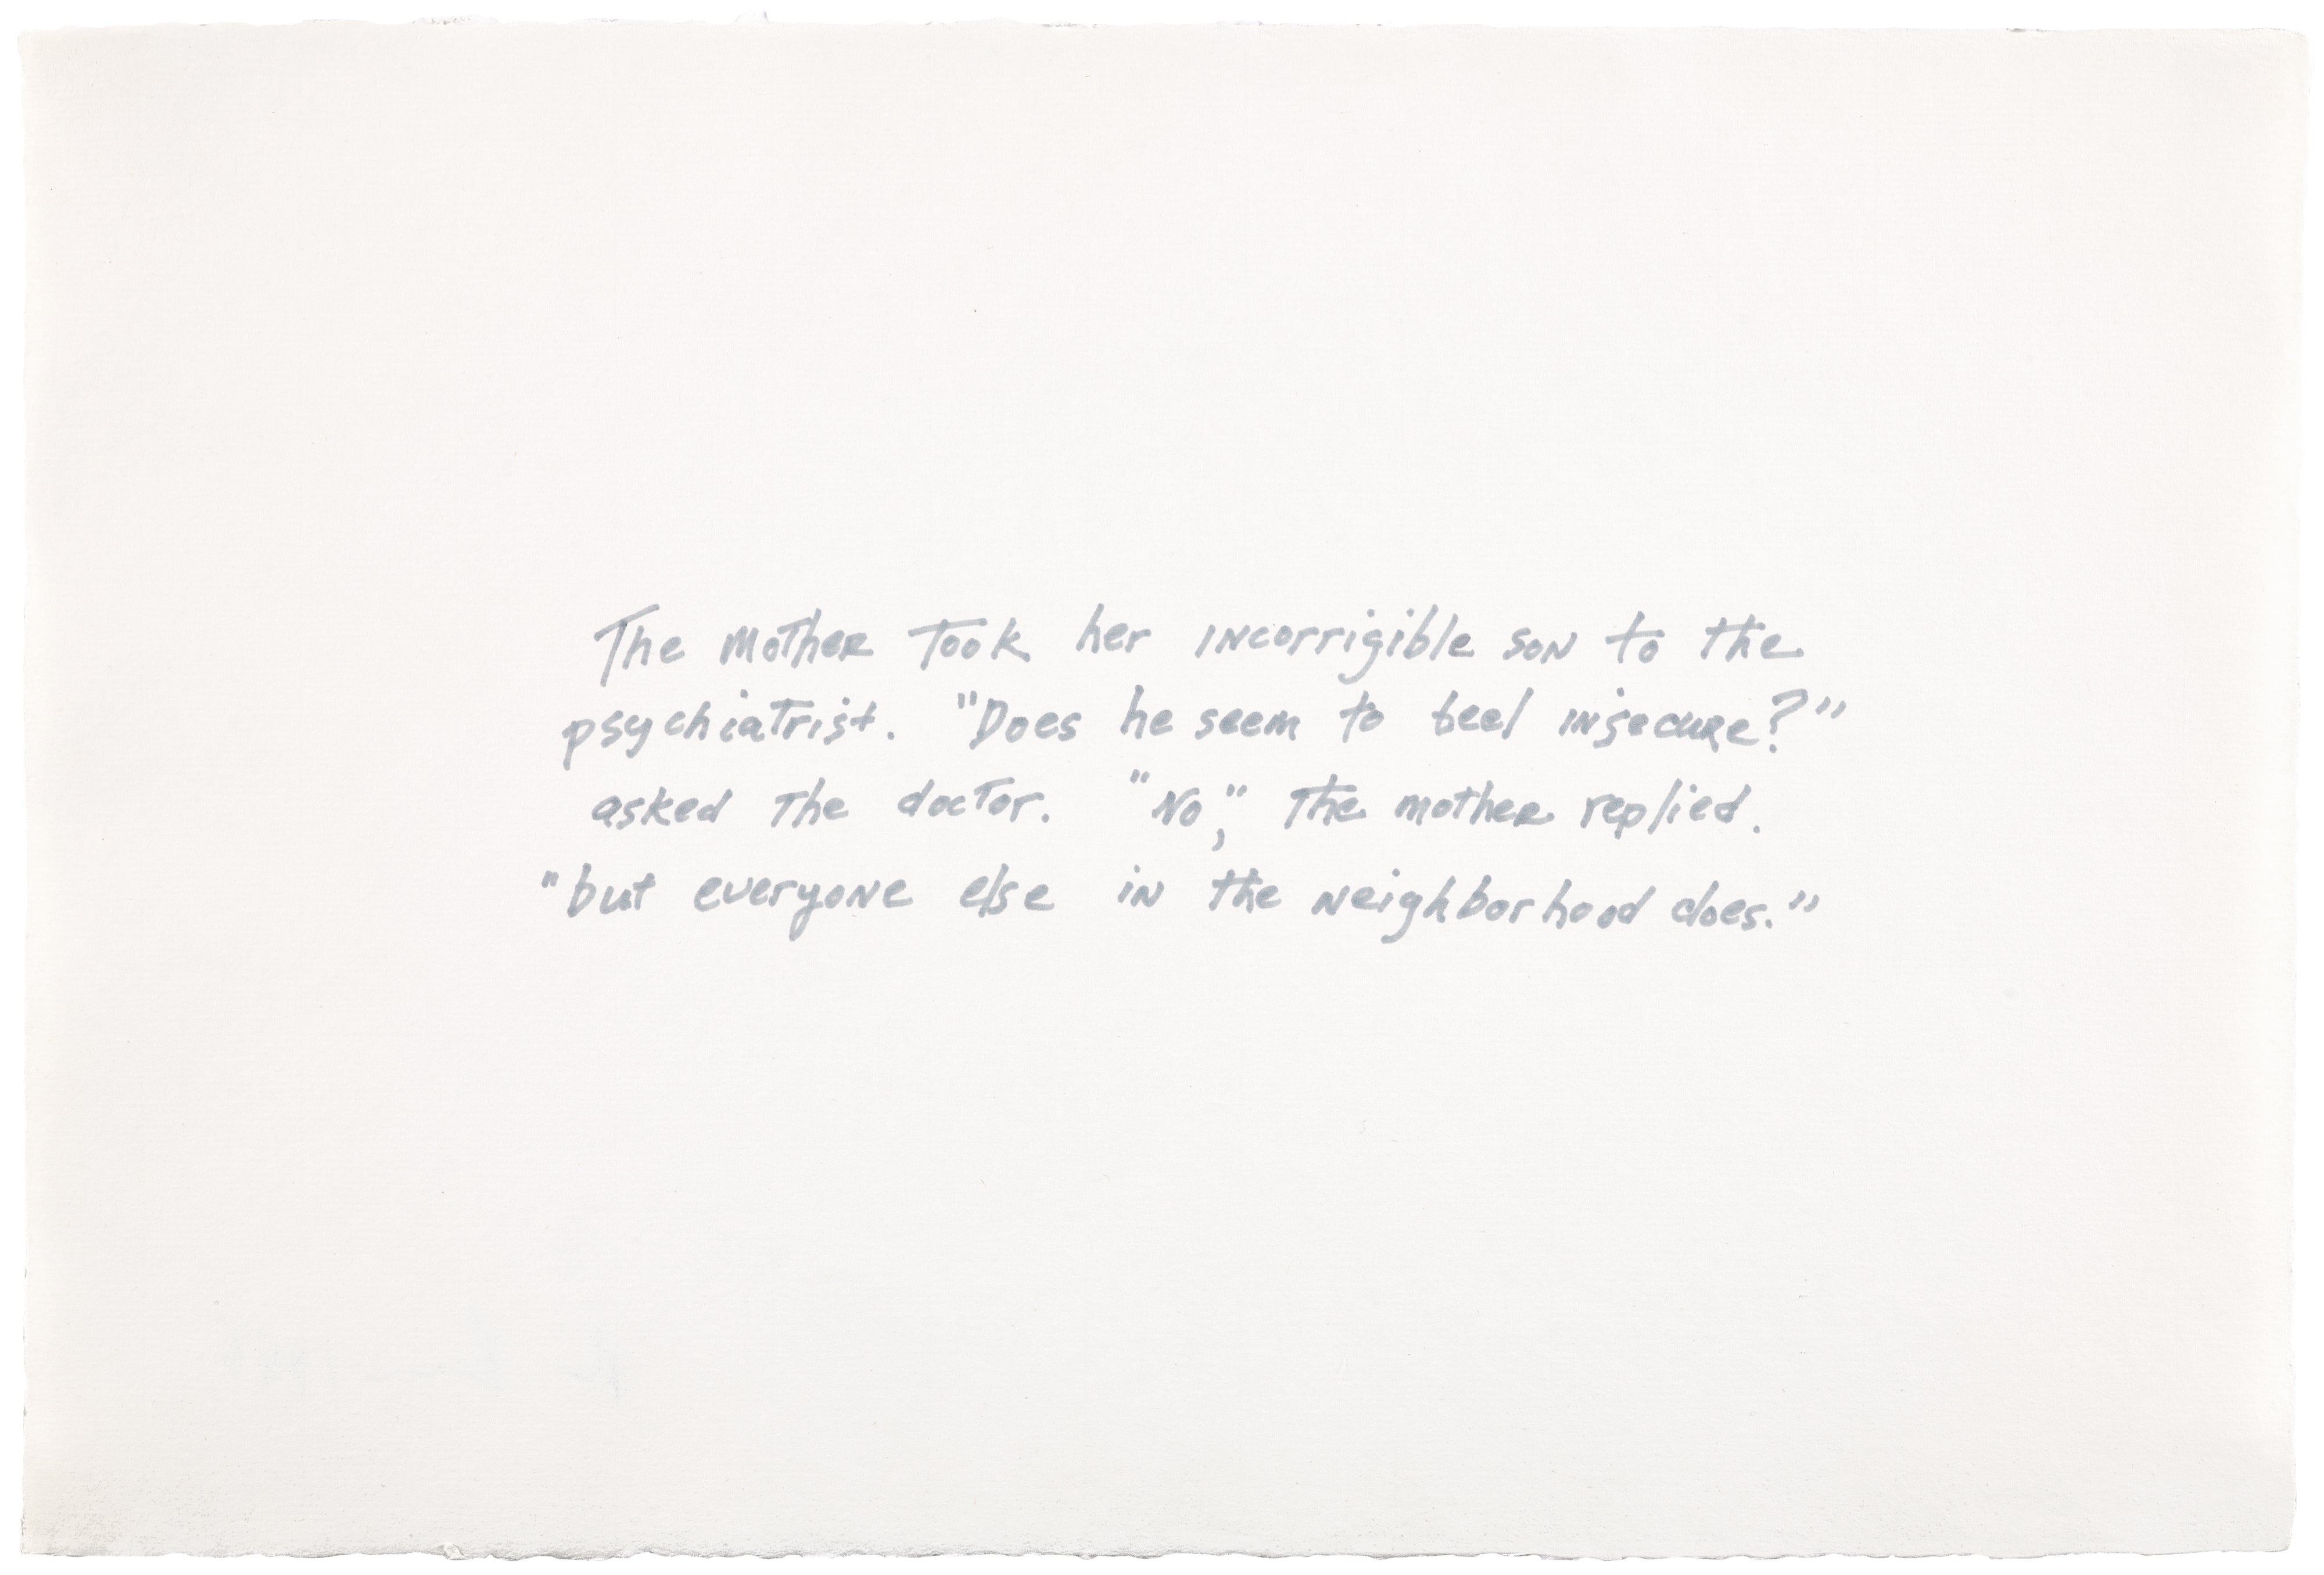 The mother took her incorrigible son to the
psychiatrist. "Does he seem to feel insecure?"
asked the doctor. "No", the mother replied.
"but everyone else in the neighborhood does."